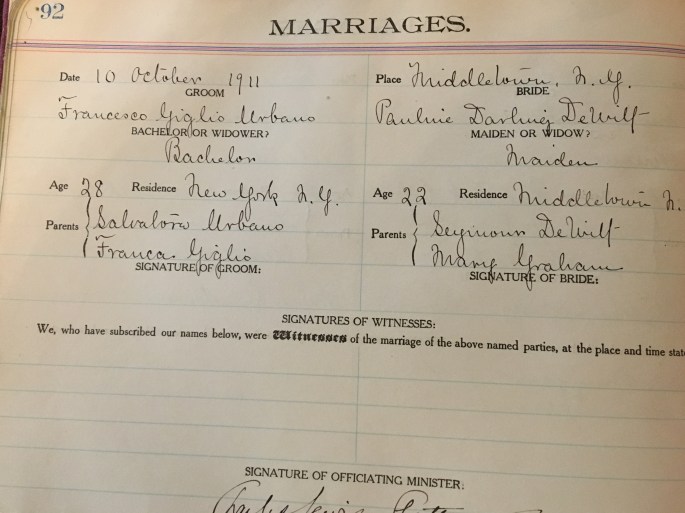 92
MARRIAGES.
Date 10 October 1911
Place Middletown, N.Y.
GROOM
BRIDE
Francesco Giglio Urbano
Pauline Darling DeWitt
BACHELOR OR WIDOWER?
MAIDEN OR WIDOW?
Bachelor
Maiden
Age 28 Residence New York N.Y.
Age 22 Residence Middletown N.
Parents Salvatore Urbano
Franca Giglio
Parents Seymour DeWitt
Mary Graham
SIGNATURE OF GROOM:
SIGNATURE OF BRIDE:
SIGNATURES OF WITNESSES:
We, who have subscribed our names below, were Witnesses of the marriage of the above named parties, at the place and time
SIGNATURE OF OFFICIATING MINISTER:
Charles Lewis